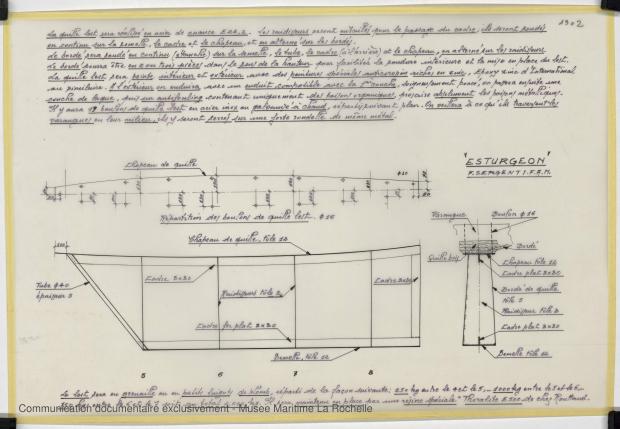 La quille lest sera réalisée en acier de nuance E.24.2. Les raidisseurs seront entaillés pour le passage du cadre, ils seront soudés
en continu sur la semelle, le cadre et le chapeau, et en alterné sur les bordés.
Le bordé sera soudé en continu (étanche) sur la semelle, le tube, le cadre (à l'arrière) et le chapeau, en alterné sur les raidisseurs
Le bordé pourra être en 2 ou trois pièces dans le sens de la hauteur pour faciliter la soudure intérieure et la mise en place du lest.
La quille lest sera peinte intérieur et extérieur avec des peintures spéciales riches en zinc, Epoxy zinc d'International
au pinceau. A l'extérieur on enduira avec un enduit compatible avec la couche, soigneusement poncé, on passera ensuite une
couche de laque, puis un antifouling contenant uniquement des poisons organiques, proscrire absolument les poisons métalliques.
Il y aura boulons de quille lest en acier inox ou galvanisé à chaud, répartis suivant plan. On veillera à ce qu'ils traversent les
varangues en leur milieu, ils y seront serrés sur une forte rondelle de même métal.
1302
Chapeau de quille
Répartition des boulons de quille lest _ φ 16
"ESTURGEON"
F. SERGENT I.F.A.M.
Chapeau de quille, tôle 12
Tube φ 40
épaisseur 5
Cadre 8x30
Raidisseurs tôle
Cadre
Cadre fer plat 8x30
Semelle, tôle 12
5 6 7 8
Varangue
Boulon φ 16
Bordé
Quille bois
Chapeau tôle 12
Cadre plat 8x30
Bordé de quille
tôle 5
Raidisseur tôle
Cadre plat 8x30
Semelle tôle 12
Le lest sera en grenaille ou en petits lingots de plomb, réparti de la façon suivante: 250 kg entre le 4 et le 5,_ 1000 kg entre le 5 et le 6_
mis en place par une résine spéciale
Communication documentaire exclusivement - Musée Maritime La Rochelle